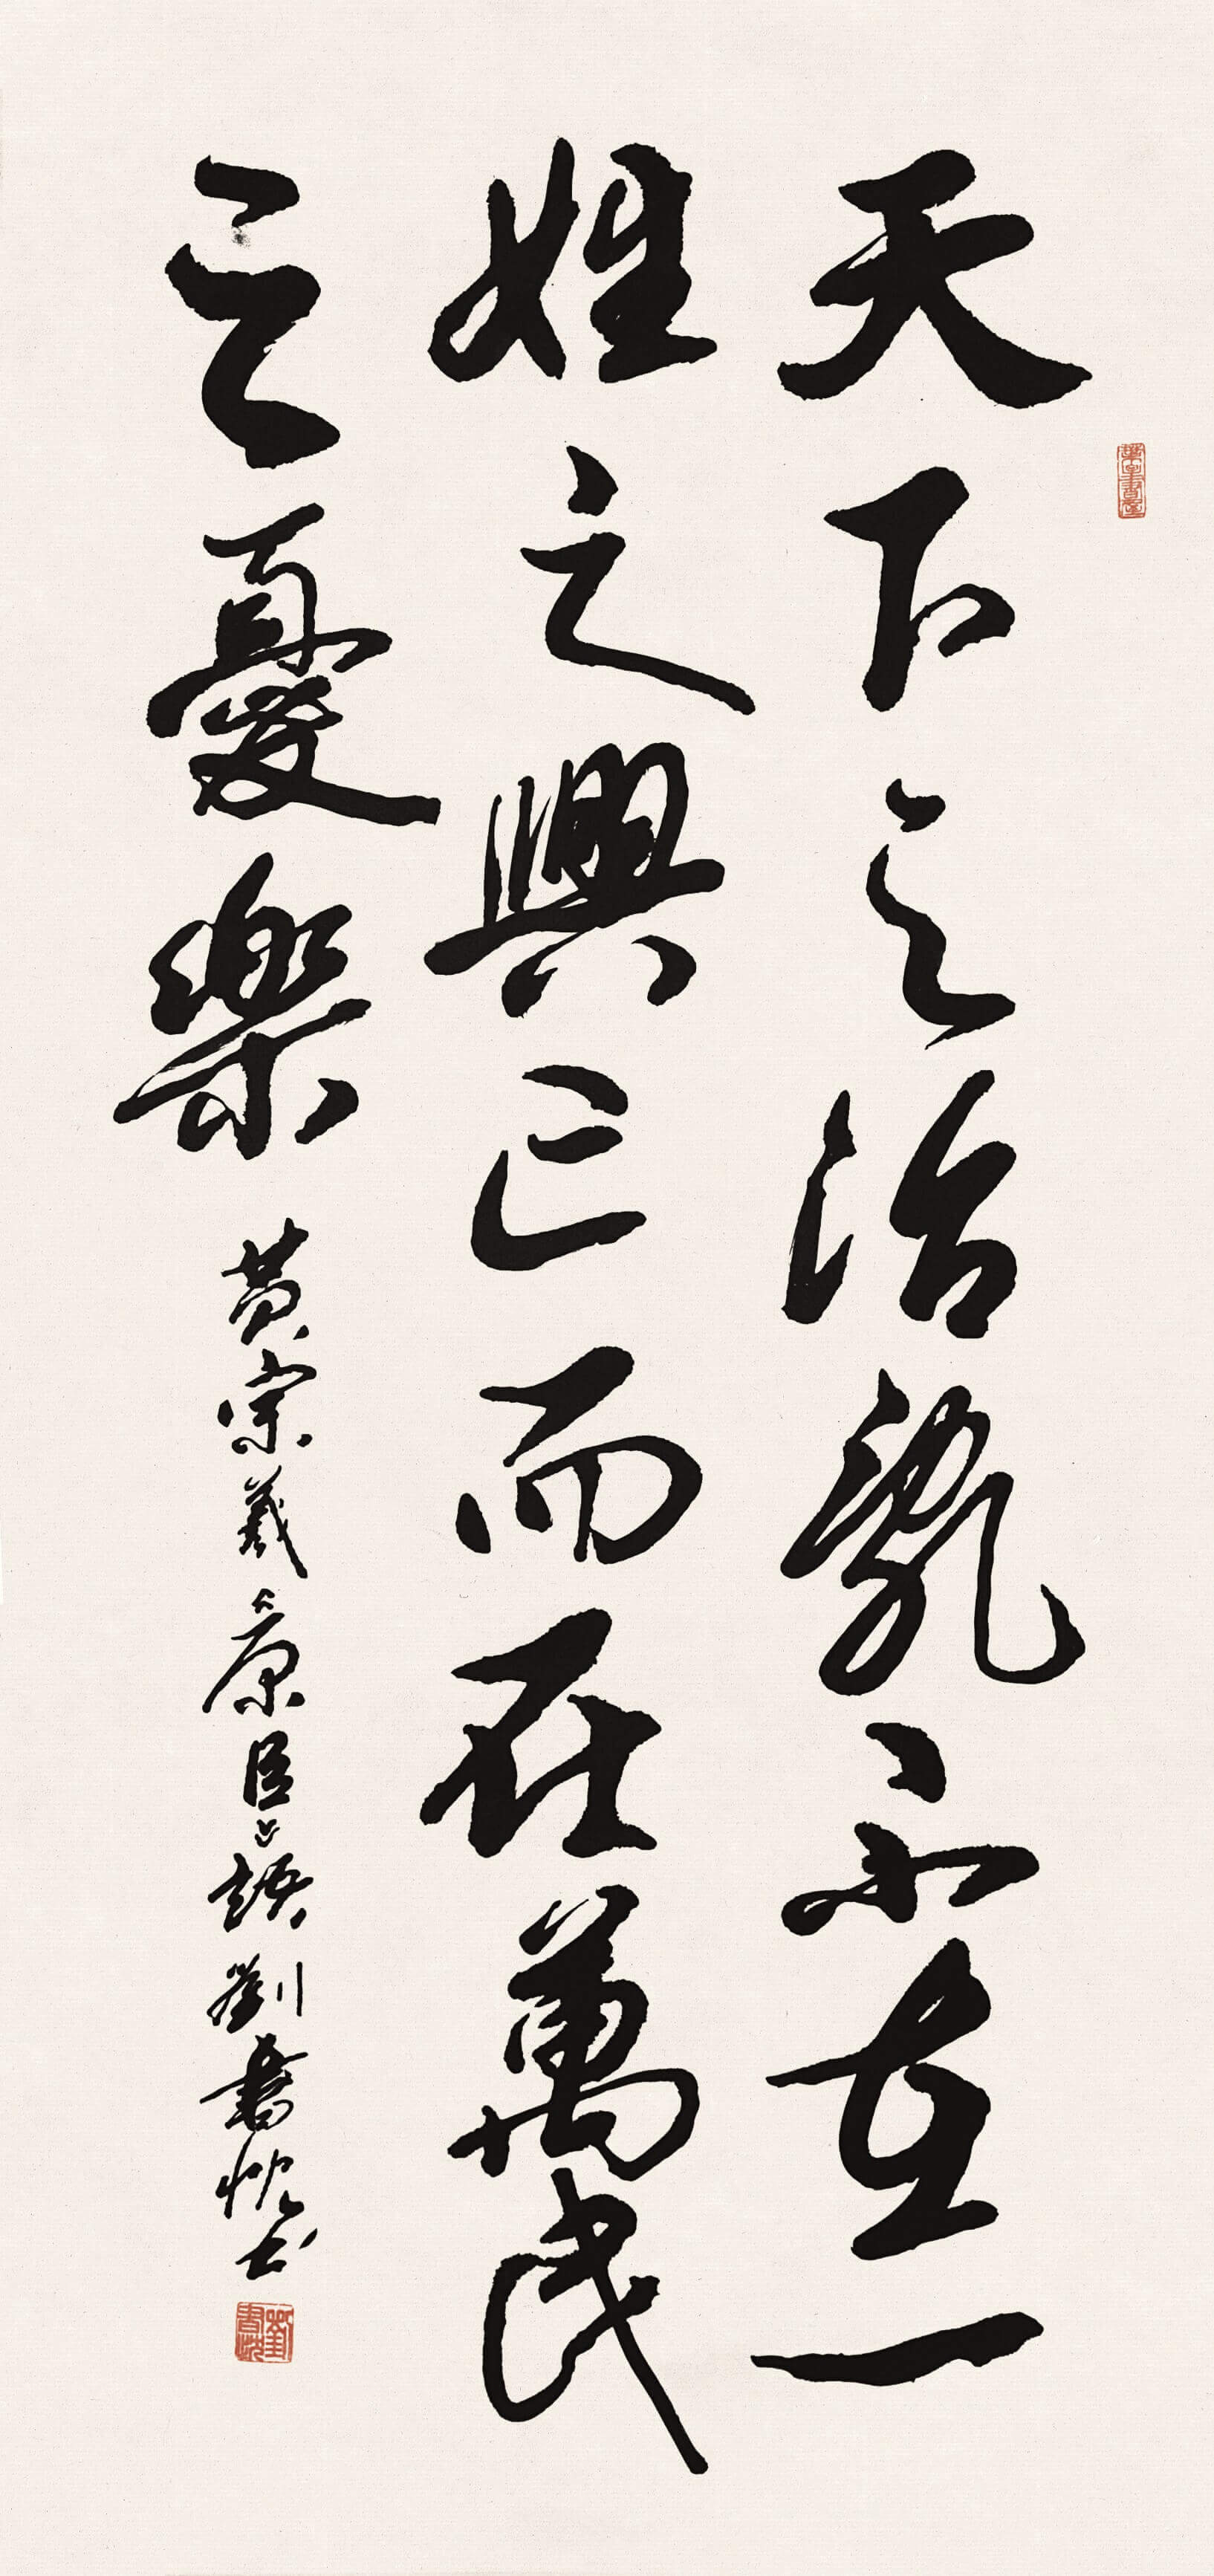 天下之治亂不在一
姓之興亡而在萬民
之憂樂 黃宗羲「原臣」語 劉書忱书
劉書忱